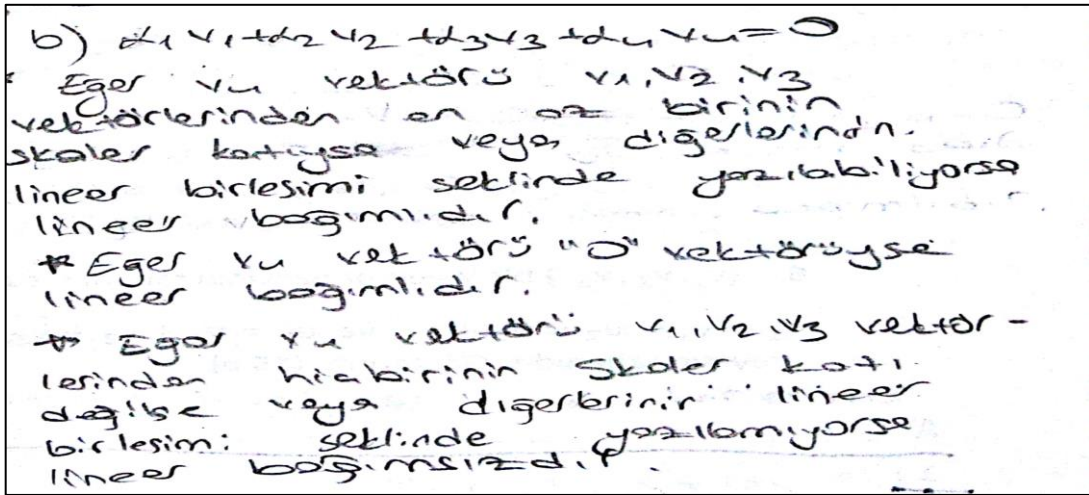 b) α1 v1 + α2 v2 + α3 v3 + α4 v4 = 0
* Eğer v4 vektörü v1, v2, v3
vektörlerinden en az birinin
skaler katıysa veya diğerlerinin
lineer birleşimi şeklinde yazılabiliyorsa
lineer bağımlıdır.
* Eğer v4 vektörü "0" vektörüyse
lineer bağımlıdır.
* Eğer v4 vektörü v1, v2, v3 vektör-
lerinden hiçbirinin skaler katı
değilse veya diğerlerinin lineer
birleşimi şeklinde yazılamıyorsa
lineer bağımsızdır.